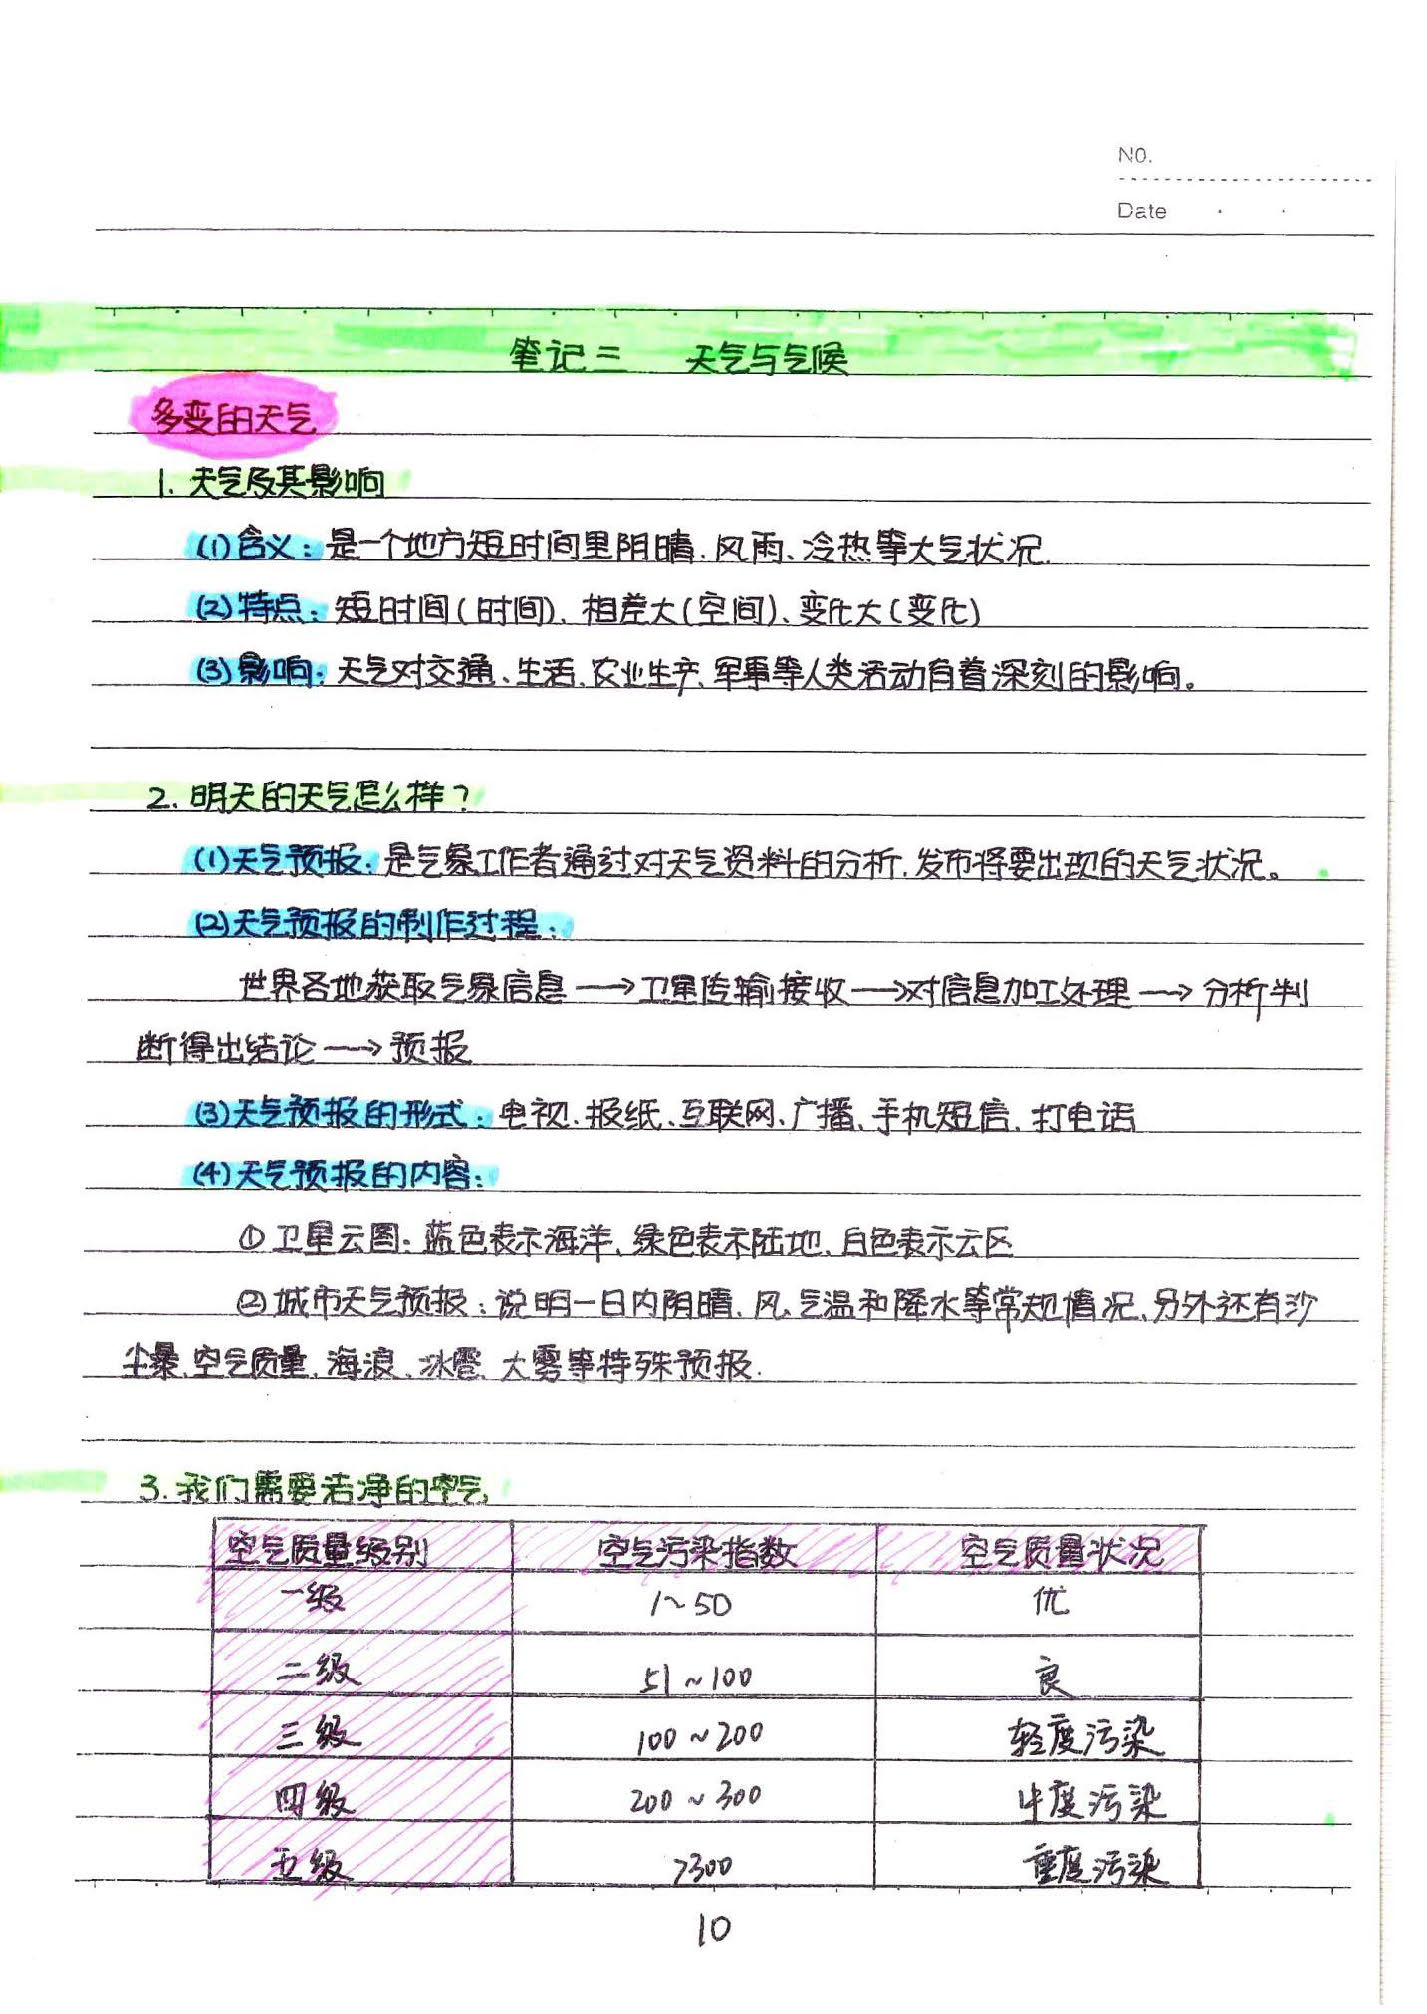 NO.
Date
笔记三 天气与气候
多变的天气
1. 天气及其影响
(1)含义：是一个地方短时间里阴晴、风雨、冷热等大气状况.
(2)特点：短时间(时间)、相差大(空间)、变化大(变化)
(3)影响：天气对交通、生活、农业生产、军事等人类活动有着深刻的影响。
2. 明天的天气怎么样？
(1)天气预报：是气象工作者通过对天气资料的分析,发布将要出现的天气状况。
(2)天气预报的制作过程：
世界各地获取气象信息→卫星传输接收→对信息加工处理→分析判
断得出结论→预报
(3)天气预报的形式：电视、报纸、互联网、广播、手机短信、打电话
(4)天气预报的内容：
①卫星云图：蓝色表示海洋、绿色表示陆地、白色表示云区
②城市天气预报：说明一日内阴晴、风、气温和降水等常规情况、另外还有沙
尘暴、空气质量、海浪、冰雹、大雾等特殊预报.
3. 我们需要洁净的空气
空气质量级别 空气污染指数 空气质量状况
一级 1~50 优
二级 51~100 良
三级 100~200 轻度污染
四级 200~300 中度污染
五级 >300 重度污染
10